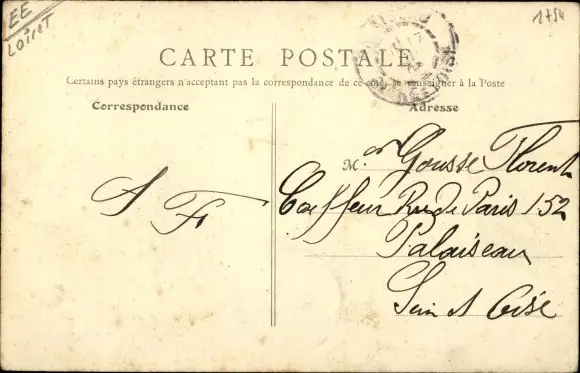 EE
LOIRET
1754
CARTE POSTALE
Certains pays étrangers n'acceptant pas la correspondance de ce côté, se renseigner à la Poste
Correspondance
Adresse
S F
Mr Gousse Florent
Coiffeur Rue de Paris 152
Palaiseau
Sein et Oise